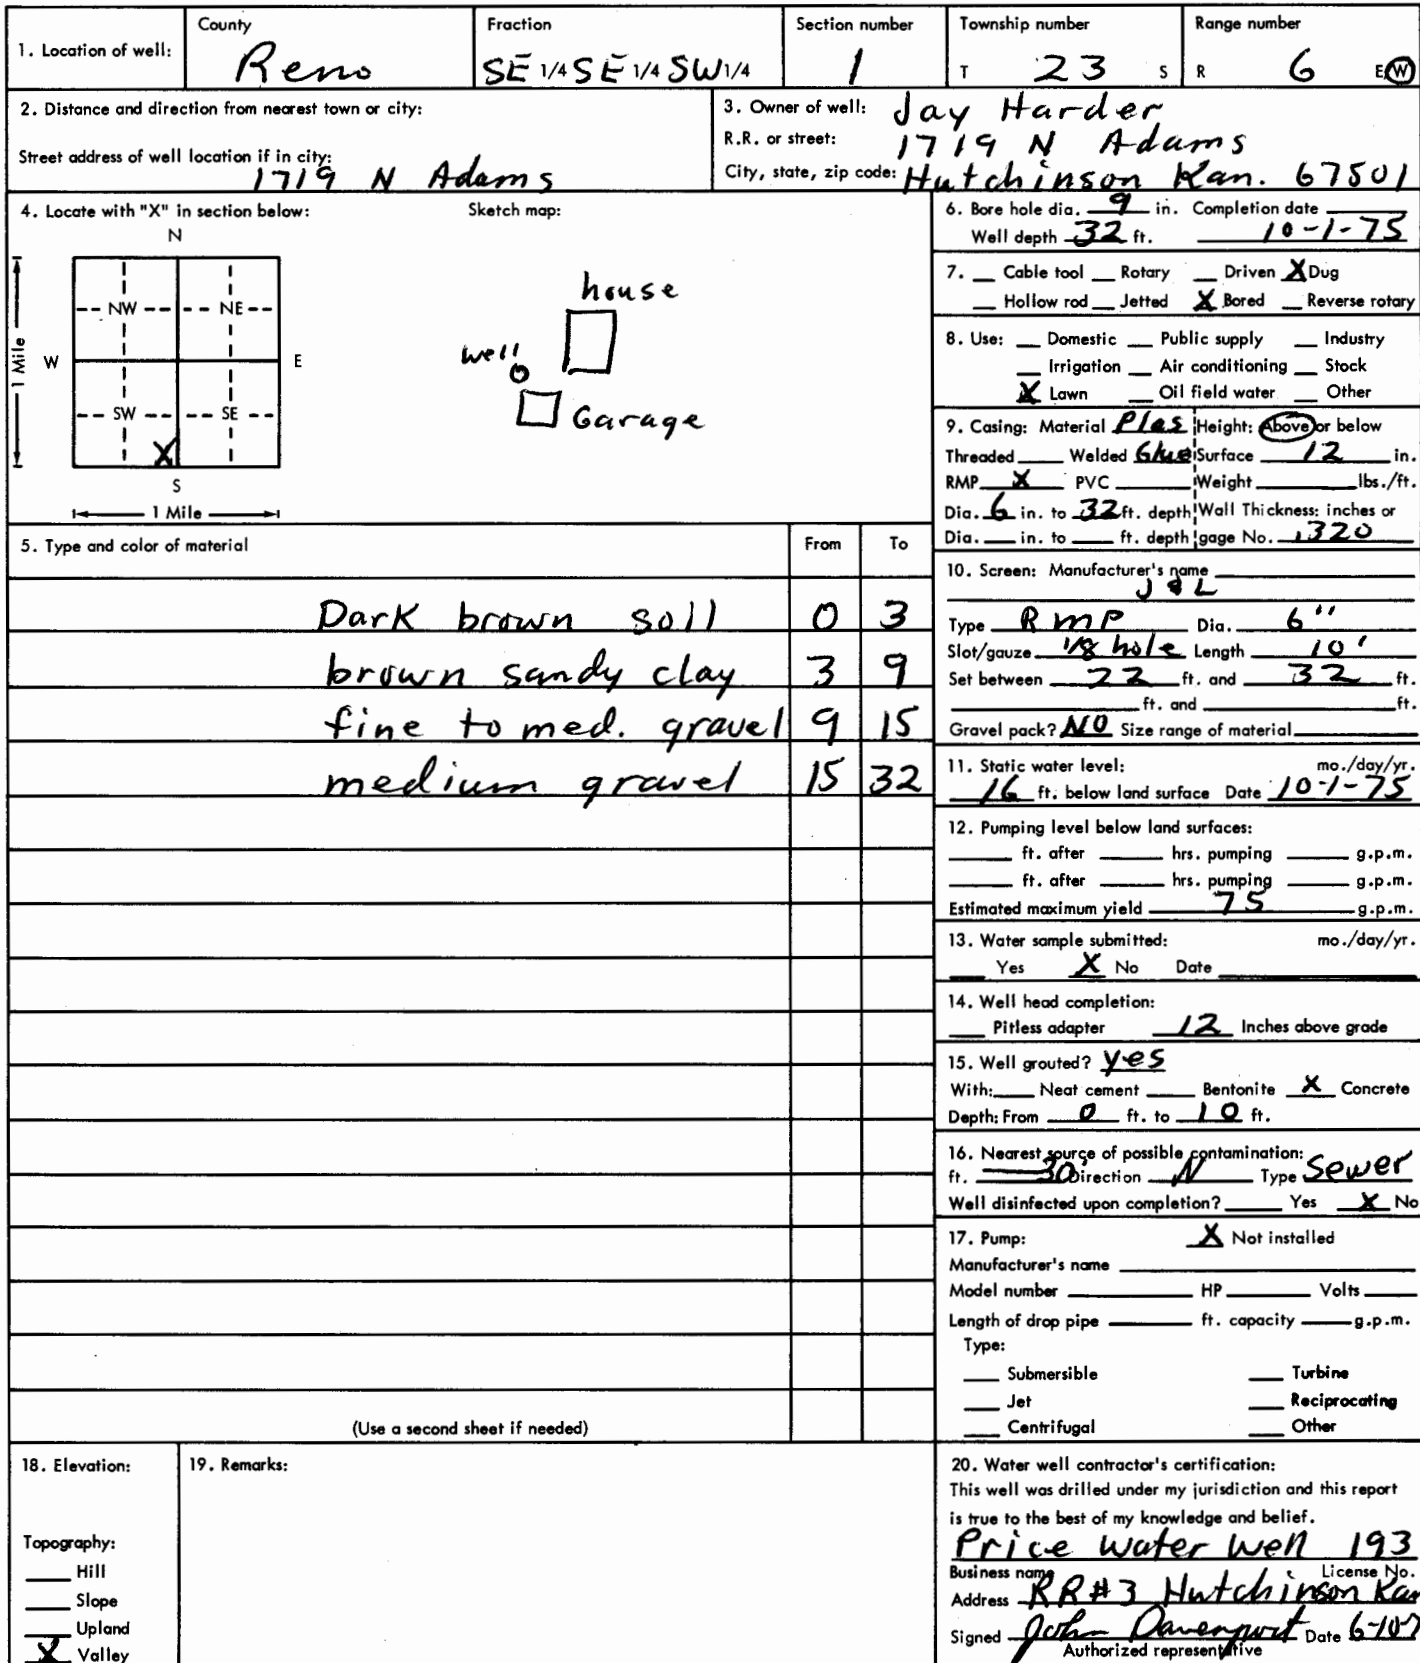 1. Location of well: County Reno Fraction SE 1/4 SE 1/4 SW 1/4 Section number 1 Township number T 23 S Range number R 6 E W
2. Distance and direction from nearest town or city:
Street address of well location if in city: 1719 N Adams
3. Owner of well: Jay Harder
R.R. or street: 1719 N Adams
City, state, zip code: Hutchinson Kan. 67501
4. Locate with "X" in section below:
N
NW NE
W E
SW SE
X
S
1 Mile
1 Mile
Sketch map:
house
well
Garage
5. Type and color of material From To
Dark brown soil 0 3
brown sandy clay 3 9
fine to med. gravel 9 15
medium gravel 15 32
(Use a second sheet if needed)
6. Bore hole dia. 9 in. Completion date
Well depth 32 ft. 10-1-75
7. __ Cable tool __ Rotary __ Driven X Dug
__ Hollow rod __ Jetted X Bored __ Reverse rotary
8. Use: __ Domestic __ Public supply __ Industry
__ Irrigation __ Air conditioning __ Stock
X Lawn __ Oil field water __ Other
9. Casing: Material Plas Height: Above or below
Threaded __ Welded Glue Surface 12 in.
RMP X PVC __ Weight __ lbs./ft.
Dia. 6 in. to 32 ft. depth Wall Thickness: inches or
Dia. __ in. to __ ft. depth gage No. .320
10. Screen: Manufacturer's name
J & L
Type RMP Dia. 6"
Slot/gauze 1/8 hole Length 10'
Set between 22 ft. and 32 ft.
__ ft. and __ ft.
Gravel pack? NO Size range of material
11. Static water level: mo./day/yr.
16 ft. below land surface Date 10-1-75
12. Pumping level below land surfaces:
__ ft. after __ hrs. pumping __ g.p.m.
__ ft. after __ hrs. pumping __ g.p.m.
Estimated maximum yield 75 g.p.m.
13. Water sample submitted: mo./day/yr.
__ Yes X No Date
14. Well head completion:
__ Pitless adapter 12 Inches above grade
15. Well grouted? yes
With: __ Neat cement __ Bentonite X Concrete
Depth: From 0 ft. to 10 ft.
16. Nearest source of possible contamination:
ft. 30' Direction N Type Sewer
Well disinfected upon completion? __ Yes X No
17. Pump: X Not installed
Manufacturer's name
Model number __ HP __ Volts
Length of drop pipe __ ft. capacity __ g.p.m.
Type:
__ Submersible __ Turbine
__ Jet __ Reciprocating
__ Centrifugal __ Other
18. Elevation:
Topography:
__ Hill
__ Slope
__ Upland
X Valley
19. Remarks:
20. Water well contractor's certification:
This well was drilled under my jurisdiction and this report
is true to the best of my knowledge and belief.
Price Water Well 193
Business name License No.
Address RR#3 Hutchinson Kan
Signed John Davenport Date 6-10-
Authorized representative